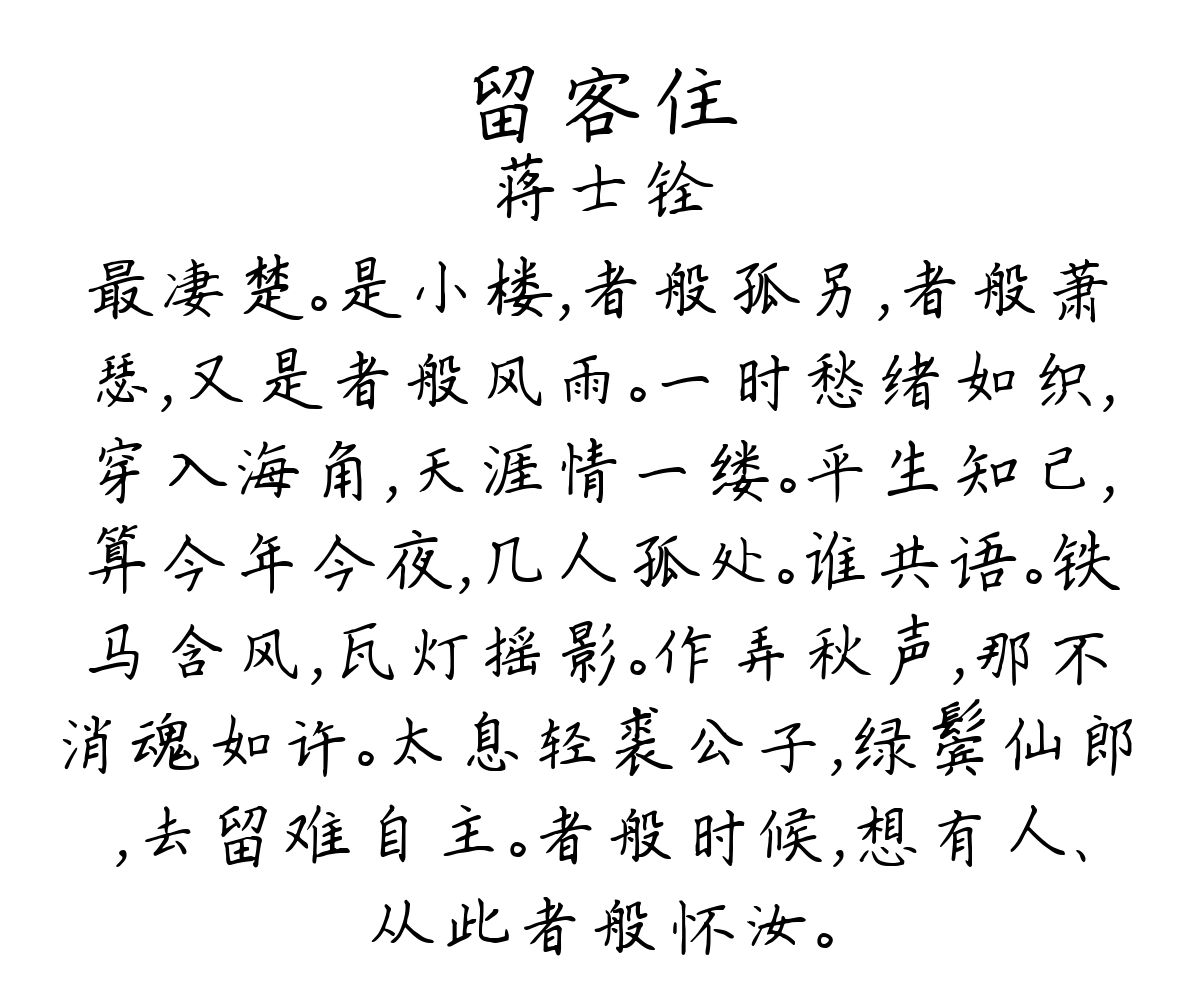 留客住
蒋士铨
最凄楚。是小楼,者般孤另,者般萧
瑟,又是者般风雨。一时愁绪如织,
穿入海角,天涯情一缕。平生知己,
算今年今夜,几人孤处。谁共语。铁
马含风,瓦灯摇影。作弄秋声,那不
消魂如许。太息轻裘公子,绿鬓仙郎
,去留难自主。者般时候,想有人、
从此者般怀汝。